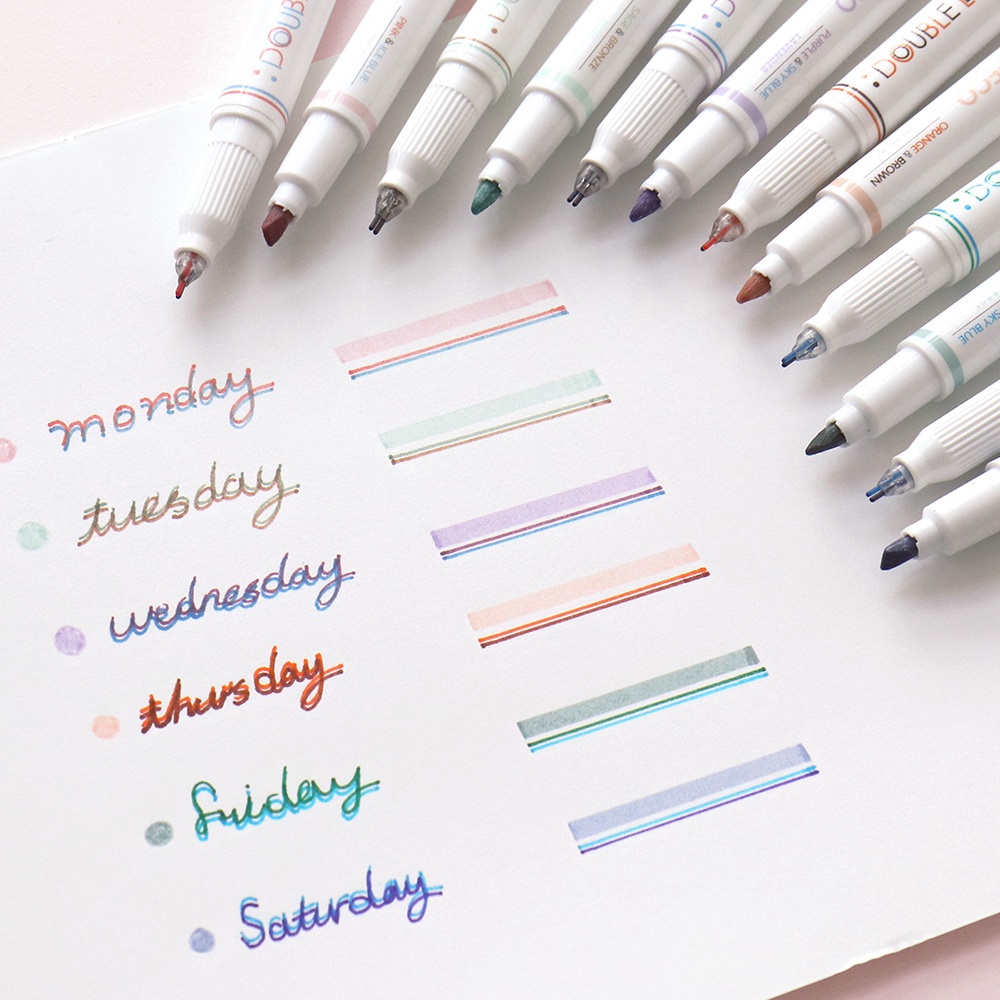 DOUB
PINK & ICE BLUE
SAGE & BRONZE
PURPLE & SKY BLUE
LAVENDER
DOUBLE
ORANGE & BROWN
SKY BLUE
monday
tuesday
wednesday
thursday
friday
Saturday